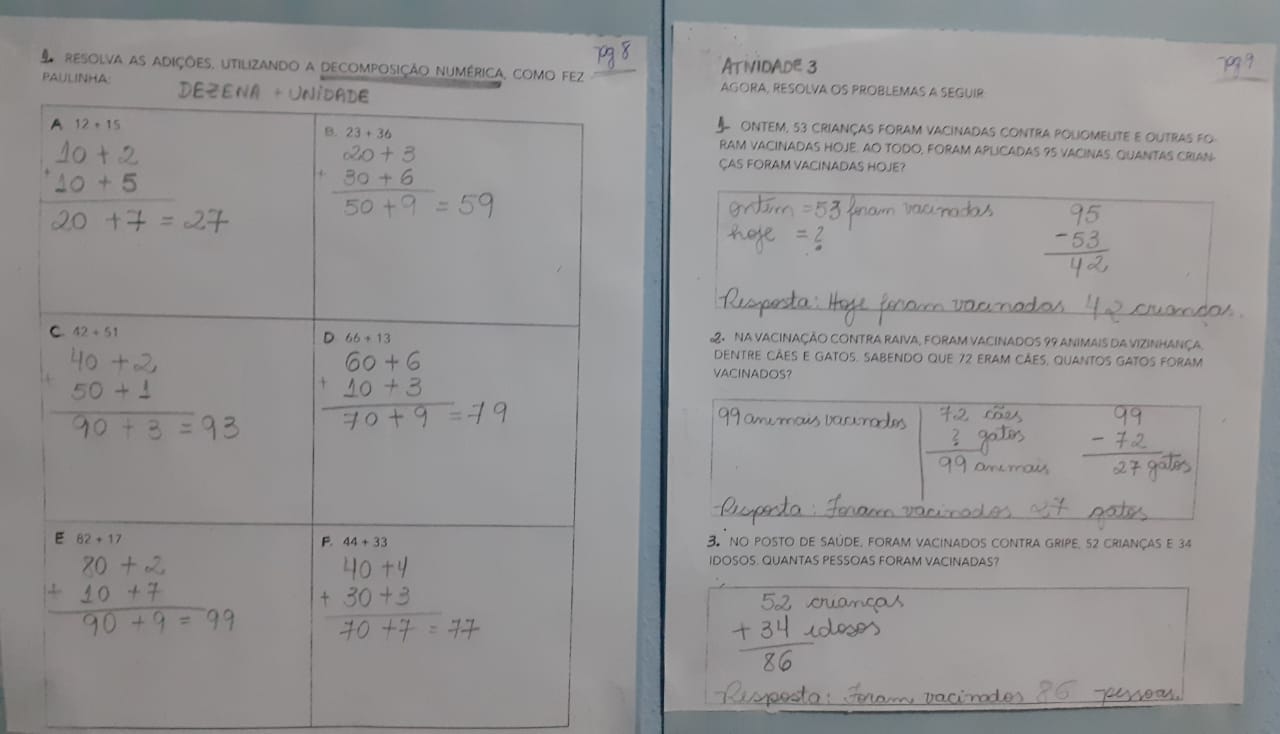 pg 8
1. RESOLVA AS ADIÇÕES, UTILIZANDO A DECOMPOSIÇÃO NUMÉRICA, COMO FEZ
PAULINHA:
DEZENA + UNIDADE
A. 12 + 15
10 + 2
+ 10 + 5
20 + 7 = 27
B. 23 + 36
20 + 3
+ 30 + 6
50 + 9 = 59
C. 42 + 51
40 + 2
+ 50 + 1
90 + 3 = 93
D. 66 + 13
60 + 6
+ 10 + 3
70 + 9 = 79
E 82 + 17
80 + 2
+ 10 + 7
90 + 9 = 99
F. 44 + 33
40 + 4
+ 30 + 3
70 + 7 = 77
pg 9
ATIVIDADE 3
AGORA, RESOLVA OS PROBLEMAS A SEGUIR:
1- ONTEM, 53 CRIANÇAS FORAM VACINADAS CONTRA POLIOMELITE E OUTRAS FO-
RAM VACINADAS HOJE. AO TODO, FORAM APLICADAS 95 VACINAS. QUANTAS CRIAN-
ÇAS FORAM VACINADAS HOJE?
ontem = 53 foram vacinadas
hoje = ?
95
- 53
42
Resposta: Hoje foram vacinadas 42 crianças.
2. NA VACINAÇÃO CONTRA RAIVA, FORAM VACINADOS 99 ANIMAIS DA VIZINHANÇA,
DENTRE CÃES E GATOS. SABENDO QUE 72 ERAM CÃES, QUANTOS GATOS FORAM
VACINADOS?
99 animais vacinados
72 cães
? gatos
99 animais
99
- 72
27 gatos
Resposta: Foram vacinados 27 gatos
3. NO POSTO DE SAÚDE, FORAM VACINADOS CONTRA GRIPE, 52 CRIANÇAS E 34
IDOSOS. QUANTAS PESSOAS FORAM VACINADAS?
52 crianças
+ 34 idosos
86
Resposta: Foram vacinados 86 pessoas.